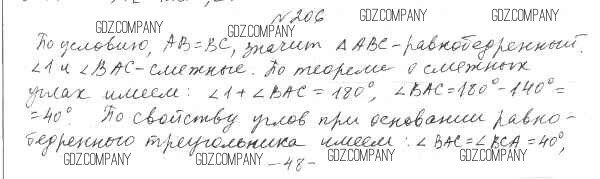 №206
GDZ.COMPANY GDZ.COMPANY GDZ.COMPANY GDZ.COMPANY
По условию, AB=BC, значит ΔABC-равнобедренный.
∠1 и ∠BAC-смежные. По теореме о смежных
углах имеем: ∠1+∠BAC=180°, ∠BAC=180°-140°=
=40°. По свойству углов при основании равно-
бедренного треугольника имеем: ∠BAC=∠BCA=40°,
GDZ.COMPANY GDZ.COMPANY -48- GDZ.COMPANY GDZ.COMPANY